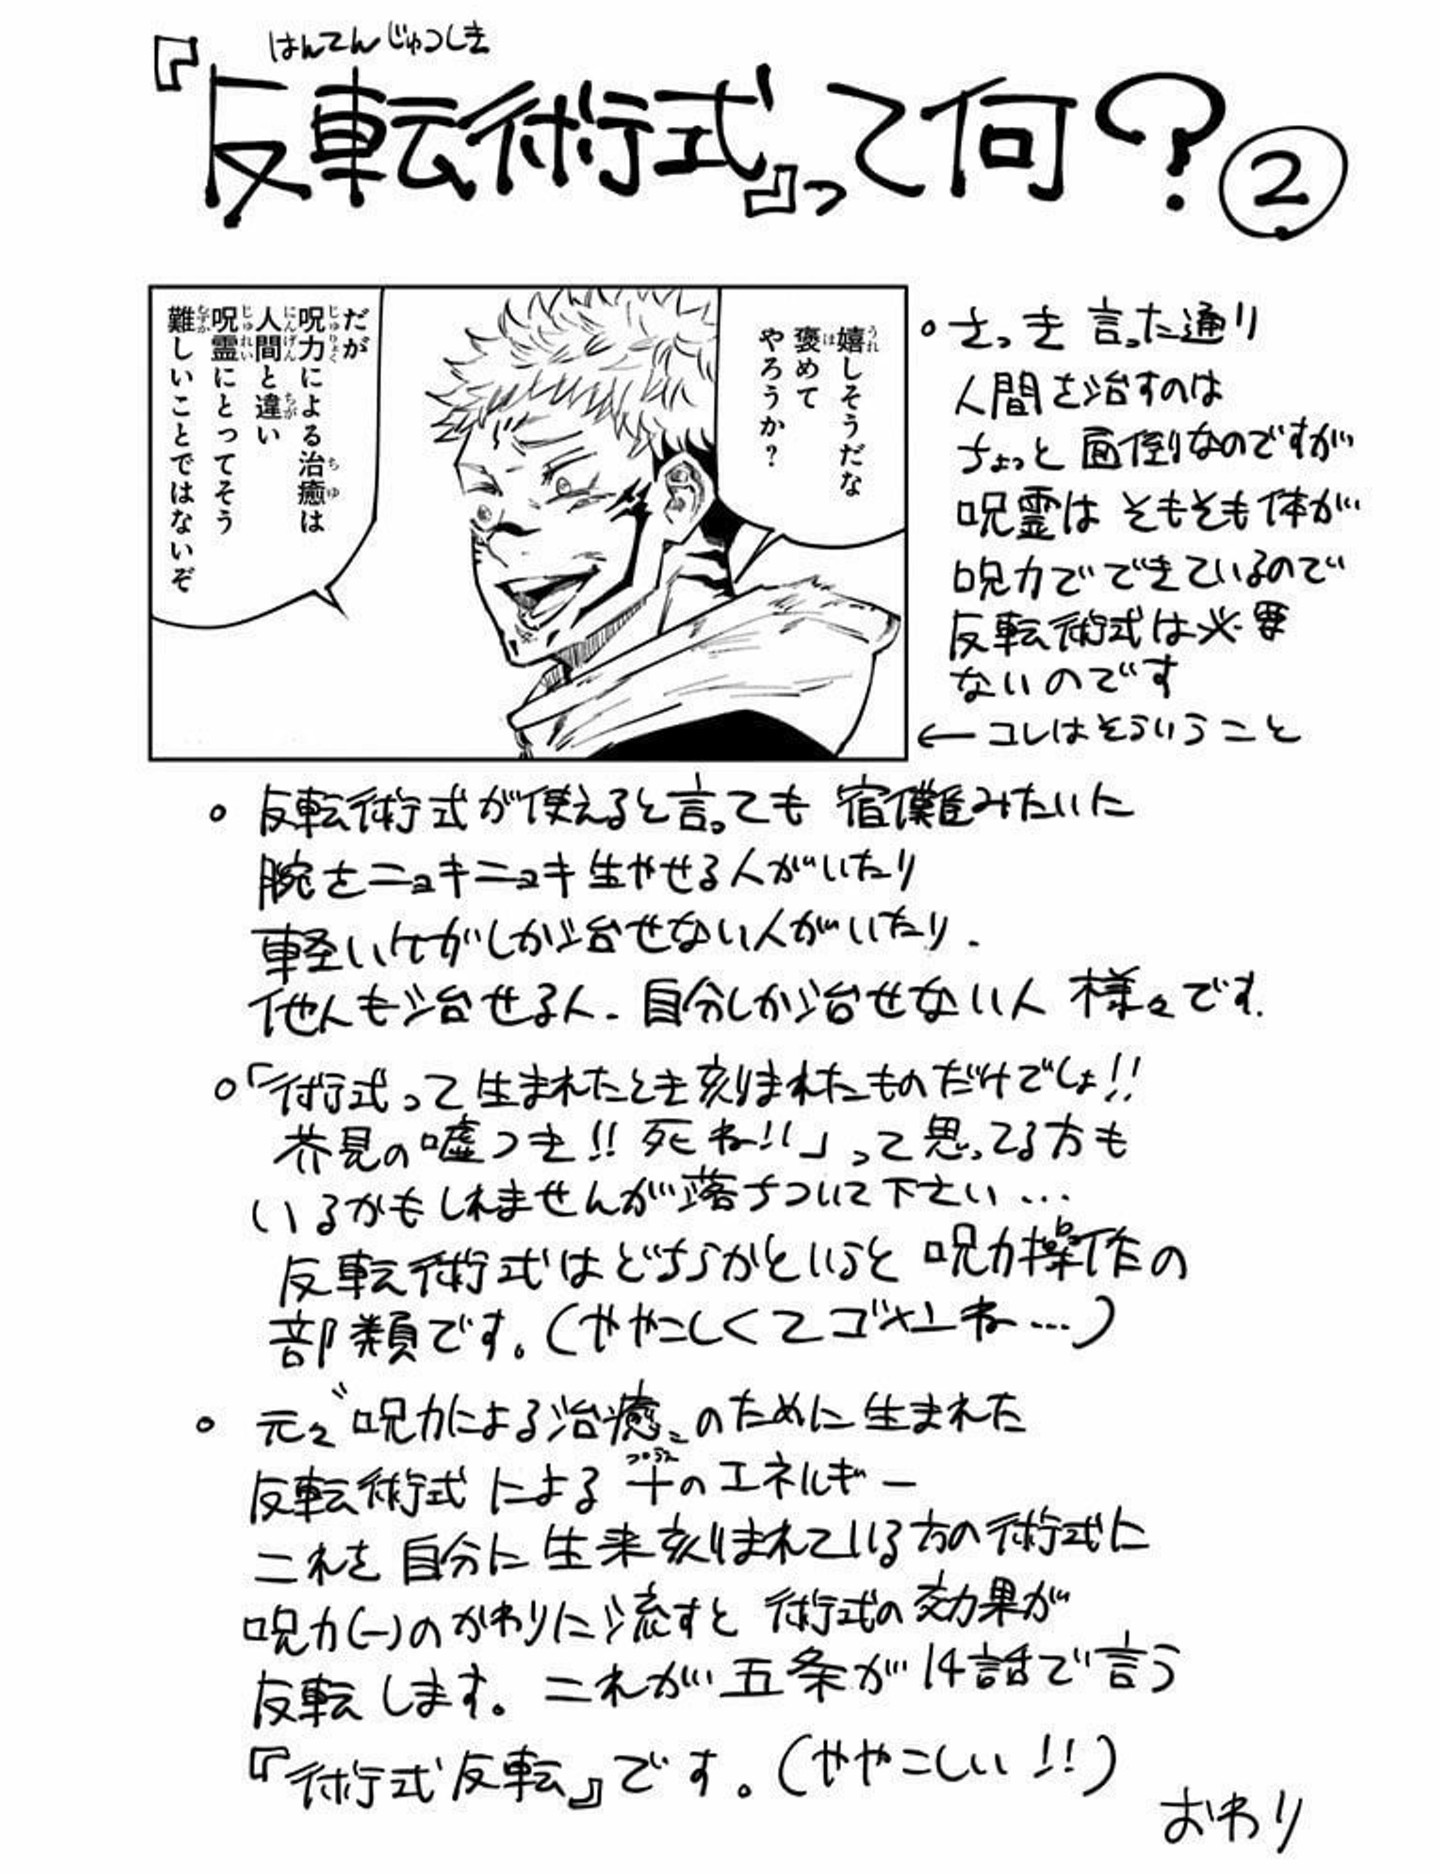 はんてんじゅつしき
『反転術式』って何？②
嬉しそうだな
褒めて
やろうか？
だが
呪力による治癒は
人間と違い
呪霊にとってそう
難しいことではないぞ
○さっき言った通り
人間を治すのは
ちょっと面倒なのですが
呪霊はそもそも体が
呪力でできているので
反転術式は必要
ないのです
←コレはそういうこと
○反転術式が使えると言っても宿儺みたいに
腕をニョキニョキ生やせる人がいたり
軽いケガしか治せない人がいたり、
他人も治せる人、自分しか治せない人 様々です。
○「術式って生まれたとき刻まれたものだけでしょ!!
芥見の嘘つき!!死ね!!」って思ってる方も
いるかもしれませんが落ちついて下さい…
反転術式はどちらかというと呪力操作の
部類です。(ややこしくてゴメンね…)
○元々〝呪力による治癒〟のために生まれた
反転術式による＋のエネルギー
プラス
これを自分に生来刻まれている方の術式に
呪力(－)のかわりに流すと術式の効果が
反転します。これが五条が14話で言う
『術式反転』です。(ややこしい!!)
おわり